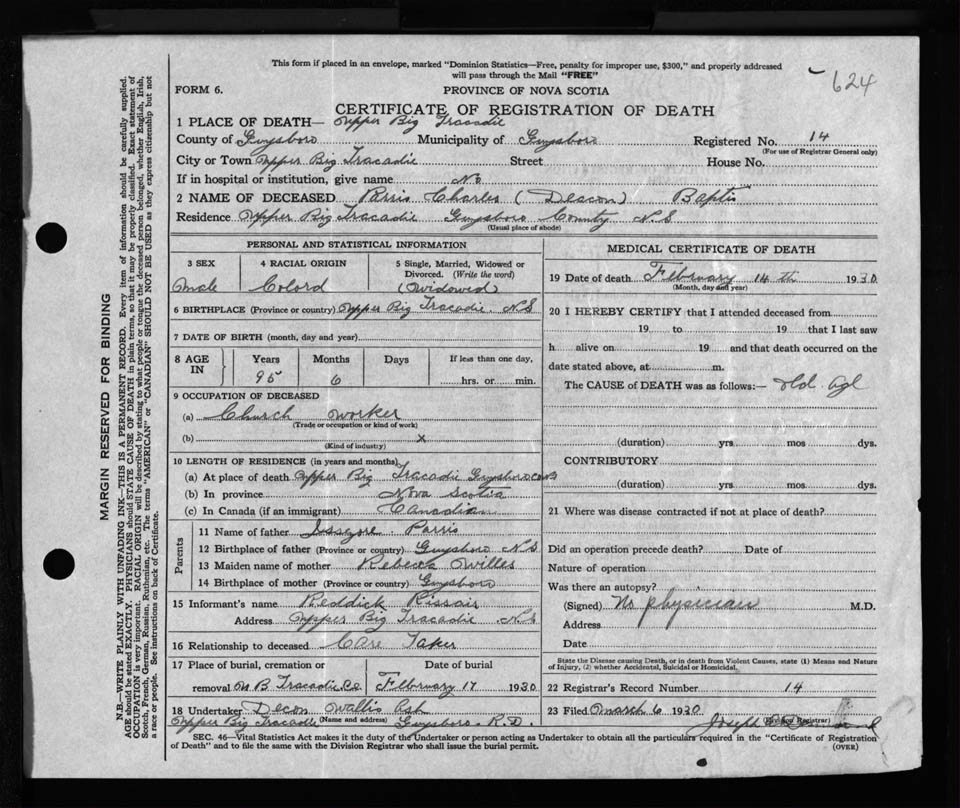 This form if placed in an envelope, marked "Dominion Statistics—Free, penalty for improper use, $300," and properly addressed
will pass through the Mail "FREE"
624
FORM 6.
PROVINCE OF NOVA SCOTIA
CERTIFICATE OF REGISTRATION OF DEATH
1 PLACE OF DEATH— Upper Big Tracadie
County of Guysboro Municipality of Guysboro Registered No. 14
(For use of Registrar General only)
City or Town Upper Big Tracadie Street House No.
If in hospital or institution, give name No
2 NAME OF DECEASED Parris Charles (Deacon) Baptis
Residence Upper Big Tracadie Guysboro County N.S
(Usual place of abode)
PERSONAL AND STATISTICAL INFORMATION
3 SEX
Male
4 RACIAL ORIGIN
Colord
5 Single, Married, Widowed or
Divorced. (Write the word)
(Widowed)
6 BIRTHPLACE (Province or country) Upper Big Tracadie. N.S
7 DATE OF BIRTH (month, day and year)
8 AGE IN
Years Months Days If less than one day,
95 6 hrs. or min.
9 OCCUPATION OF DECEASED
(a) Church worker
(Trade or occupation or kind of work)
(b) x
(Kind of industry)
10 LENGTH OF RESIDENCE (in years and months)
(a) At place of death Upper Big Tracadie Guysboro
(b) In province Nova Scotia
(c) In Canada (if an immigrant) Canadian
Parents
11 Name of father Parris
12 Birthplace of father (Province or country) Guysboro N.S
13 Maiden name of mother Rebecca Willes
14 Birthplace of mother (Province or country) Guysboro
15 Informant's name Reddick
Address Upper Big Tracadie N.S
16 Relationship to deceased Care Taker
17 Place of burial, cremation or
removal Tracadie Date of burial February 17 1930
18 Undertaker Decon Wallis
(Name and address)
Upper Big Tracadie Guysboro. R.D.
MEDICAL CERTIFICATE OF DEATH
19 Date of death February 14th 1930
(Month, day and year)
20 I HEREBY CERTIFY that I attended deceased from
19 to 19 that I last saw
h alive on 19 and that death occurred on the
date stated above, at m.
The CAUSE of DEATH was as follows:— old agl
(duration) yrs mos dys.
CONTRIBUTORY
(duration) yrs mos dys.
21 Where was disease contracted if not at place of death?
Did an operation precede death? Date of
Nature of operation
Was there an autopsy?
(Signed) No physician M.D.
Address
Date
State the Disease causing Death, or in death from Violent Causes, state (1) Means end Nature
of Injury, (2) whether Accidental, Suicidal or Homicidal.
22 Registrar's Record Number 14
23 Filed March 6 1930
Joseph
(Division Registrar)
SEC. 46—Vital Statistics Act makes it the duty of the Undertaker or person acting as Undertaker to obtain all the particulars required in the "Certificate of Registration
of Death" and to file the same with the Division Registrar who shall issue the burial permit.
(OVER)
MARGIN RESERVED FOR BINDING
N.B.—WRITE PLAINLY WITH UNFADING INK—THIS IS A PERMANENT RECORD. Every item of information should be carefully supplied.
AGE should be stated EXACTLY. PHYSICIANS should STATE CAUSE OF DEATH in plain terms, so that it may be properly classified. Exact statement of
OCCUPATION is very important. RACIAL ORIGIN will be described by stating to what people or tongue the deceased person belonged, whether English, Irish,
Scotch, French, German, Russian, Ruthenian, etc. The terms "AMERICAN" or "CANADIAN" SHOULD NOT BE USED as they express citizenship but not
a race or people. See instructions on back of Certificate.